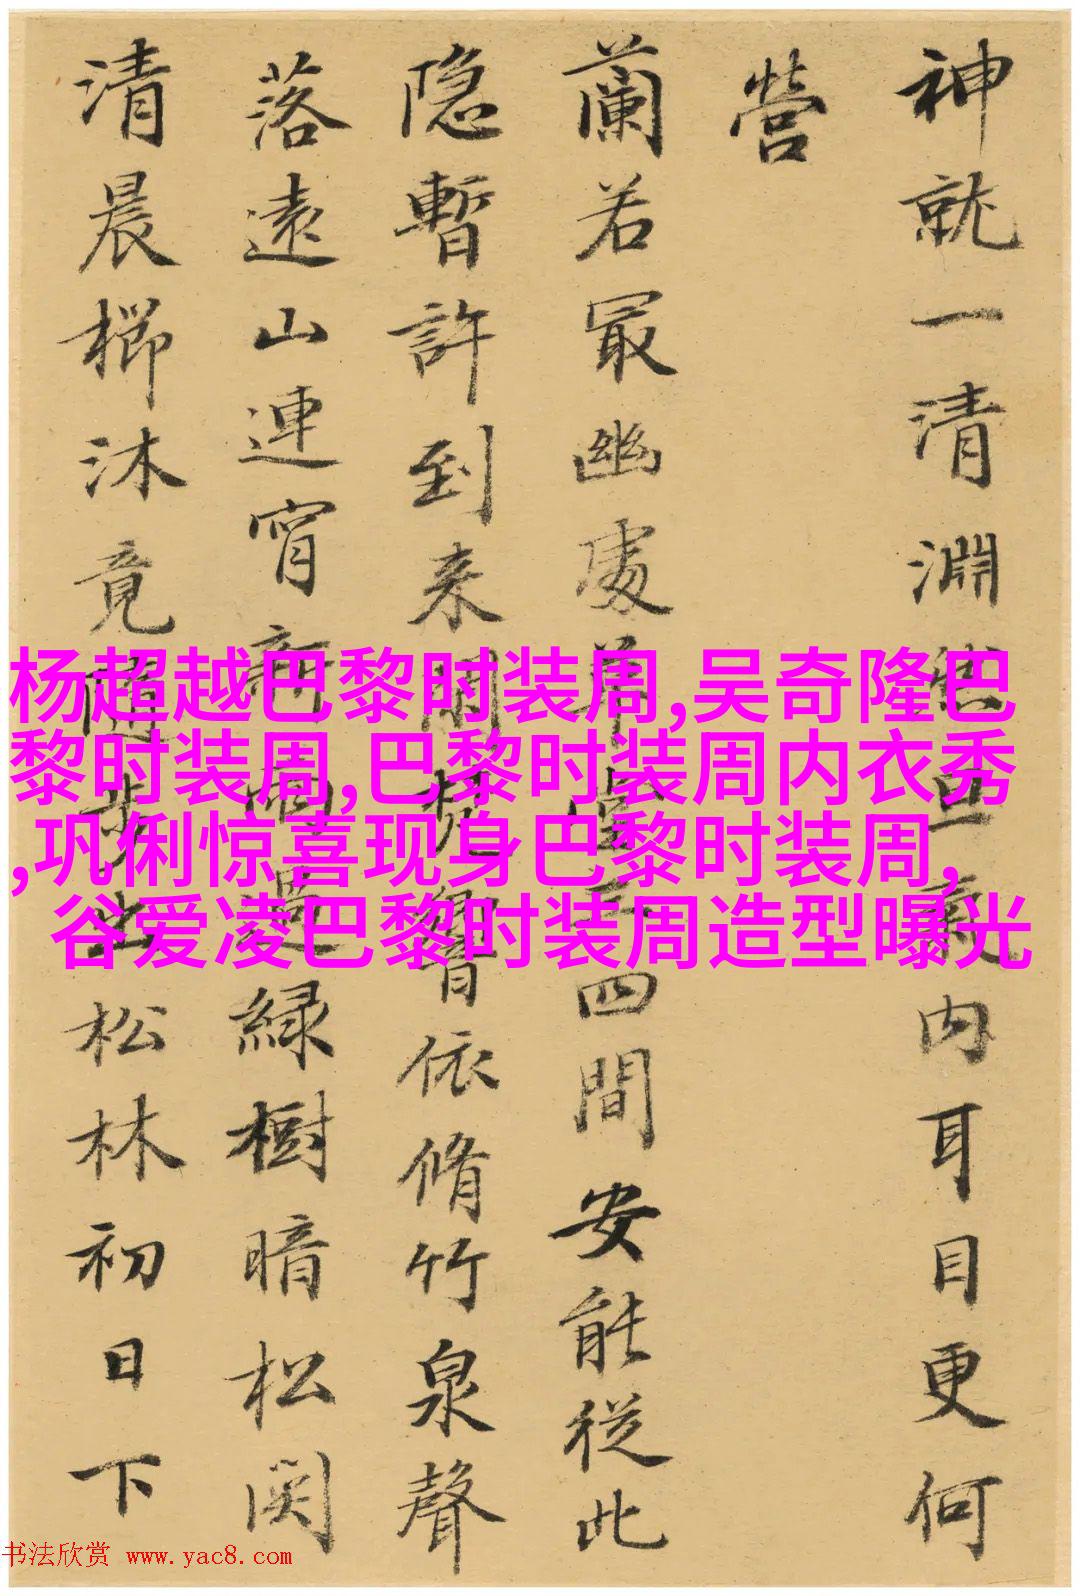 神就一清淵然旦氣内耳目更何
營
蘭若冣幽處草堂三四間安能從此
隐暫許到来閑梵響依脩竹泉聲
落遠山連宵新雨過緑樹暗松関
清晨櫛沐竟随步出松林初日下
杨超越巴黎时装周,吴奇隆巴
黎时装周,巴黎时装周内衣秀
,巩俐惊喜现身巴黎时装周,
谷爱凌巴黎时装周造型曝光
书法欣赏 www.yac8.com